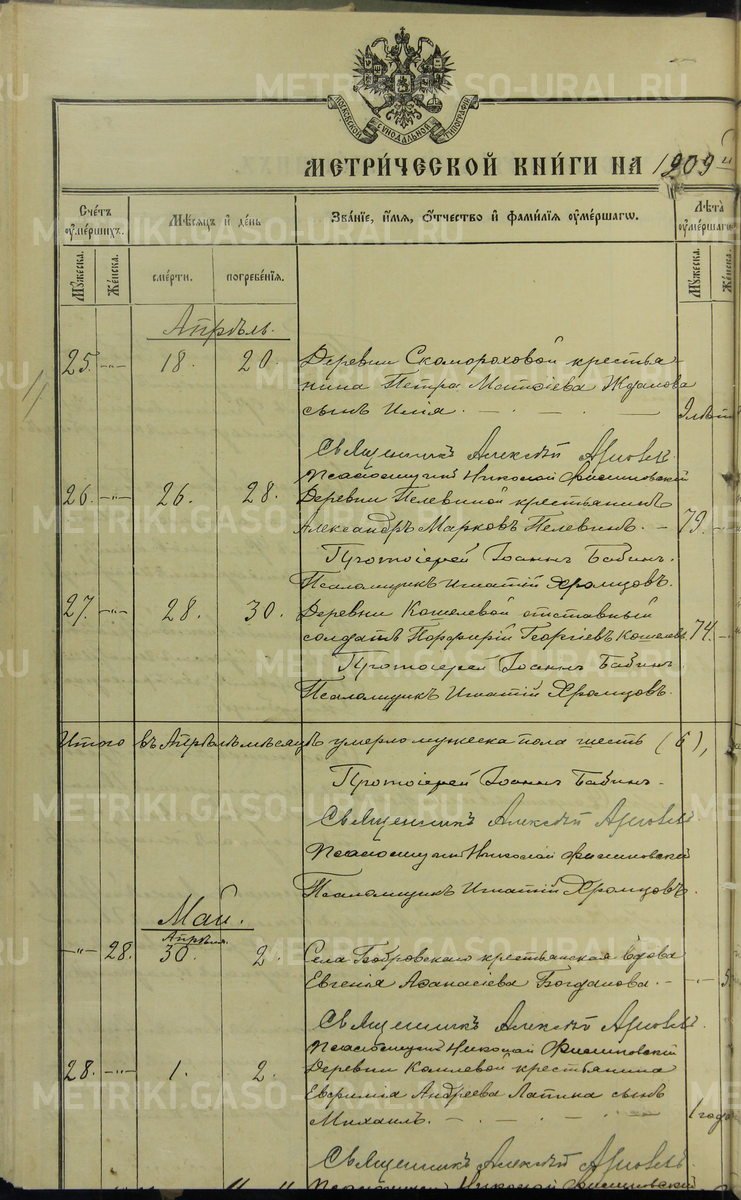 МОСКОВСКОЙ СѴНОДАЛЬНОЙ ТИПОГРАФІИ
МЕТРИ́ЧЕСКОЙ КНИ́ГИ НА 1909
Сче́тъ ᲂу҆ме́ршихъ.
Мѣ́сяцъ и҆ де́нь
Зва́нїе, и҆́мя, ѻ҆́тчество и҆ фами́лїя ᲂу҆ме́ршагѡ.
Лѣ́та ᲂу҆ме́ршагѡ
Му́жеска.
Же́нска.
сме́рти.
погребе́нїя.
Му́жеска.
Же́нска.
Апрѣль.
25. -"- 18. 20. Деревни Скомороховой крестья-
нина Петра Матѳіева Жданова
сынъ Илія. 
Священникъ Алексѣй
Псаломщикъ Николай
26. -"- 26. 28. Деревни Пелевиной крестьянинъ
Александръ Марковъ Пелевинъ. - 79. -
Протоіерей Іоаннъ Бабинъ.
Псаломщикъ Игнатій Хромцовъ.
27. -"- 28. 30. Деревни Кошелевой отставный
солдатъ Порфирій Георгіевъ Кошелевъ 74. -
Протоіерей Іоаннъ Бабинъ.
Псаломщикъ Игнатій Хромцовъ.
Итого въ Апрѣлѣ мѣсяцѣ умерло мужеска пола шесть (6),
Протоіерей Іоаннъ Бабинъ.
Священникъ Алексѣй
Псаломщикъ Николай
Псаломщикъ Игнатій Хромцовъ.
Май.
Апрѣля.
-"- 28. 30. 2. Села Бобровскаго крестьянская вдова
Евгенія Аѳанасіева Богданова. -
Священникъ Алексѣй
Псаломщикъ Николай
28. -"- 1. 2. Деревни крестьянина
Евѳимія Андреева Лапина сынъ
Михаилъ. 1 года
Священникъ Алексѣй
Псаломщикъ Николай
METRIKI.GASO-URAL.RU